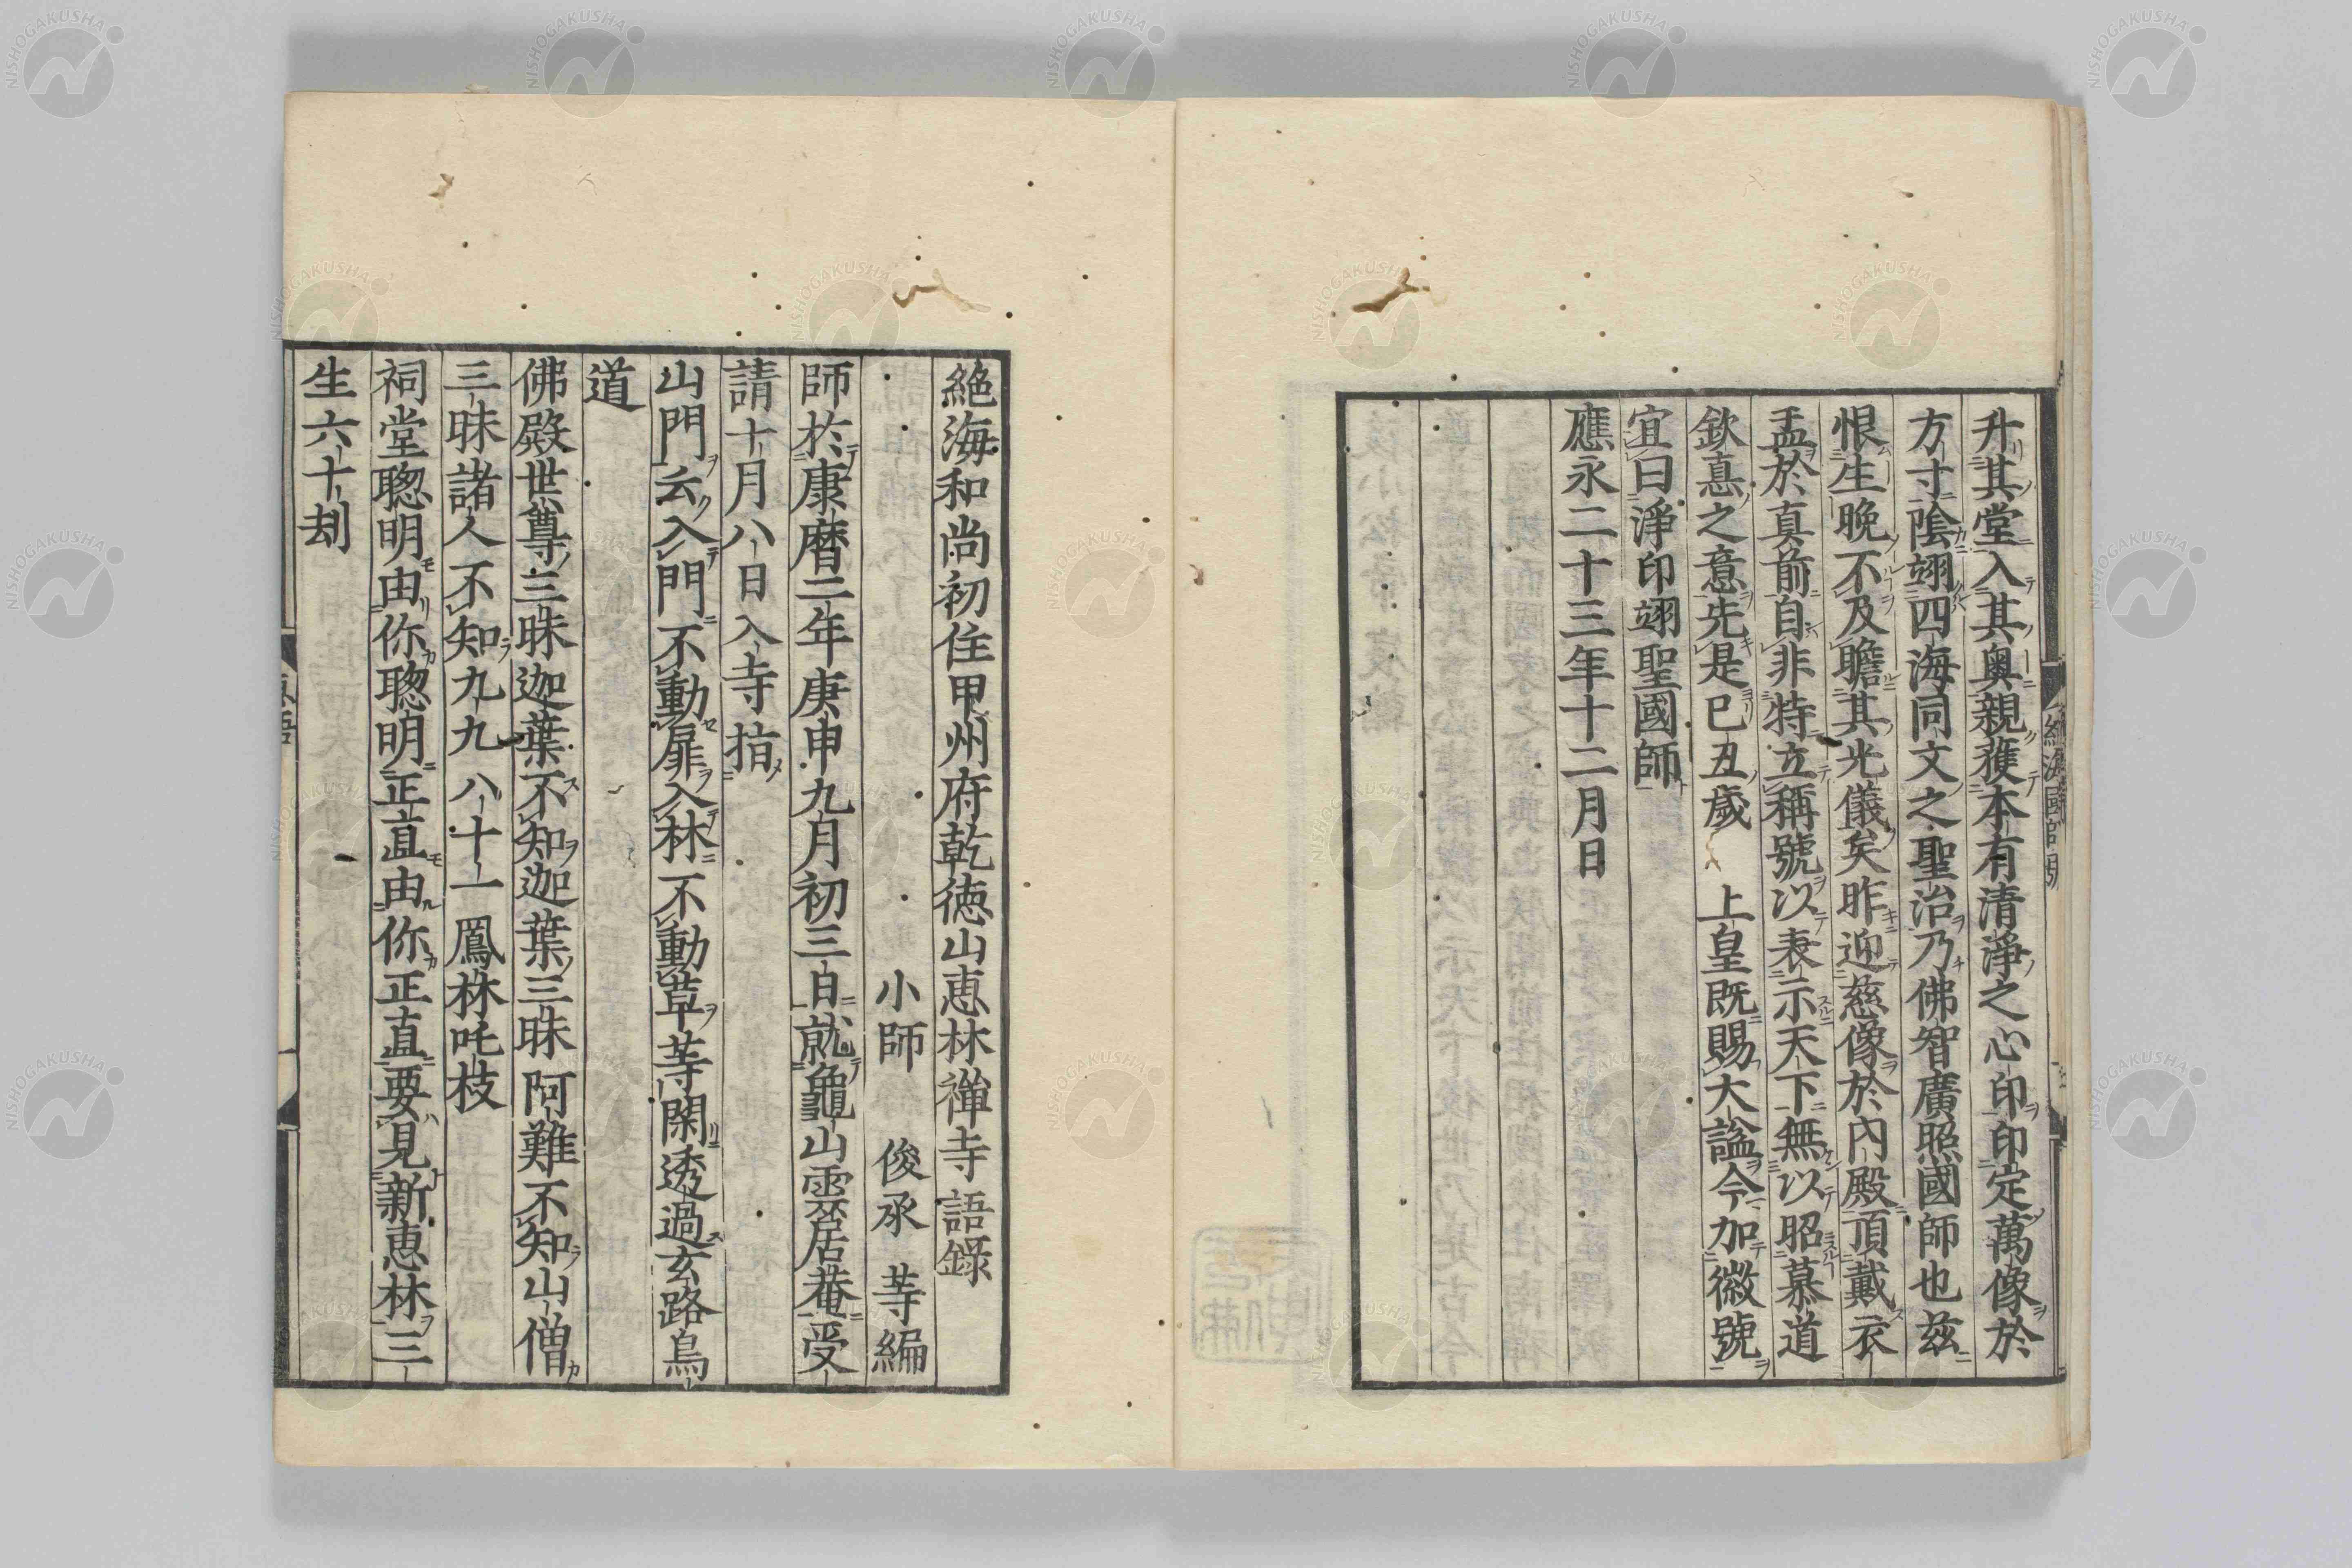 升其堂入其奥親獲本有清淨之心印印定萬像於
方寸陰翊四海同文之聖治乃佛智廣照國師也茲
恨生晚不及瞻其光儀矣昨迎慈像於内殿頂戴衣
盂於真前自非特立稱號以表示天下無以昭慕道
欽悳之意先是已丑歲 上皇既賜大謚今加徽號
宜曰淨印翊聖國師
應永二十三年十二月日
絶海和尚初住甲州府乾徳山恵林禅寺語錄
小師 俊承 䓁編
師於康曆二年庚申九月初三日就龜山雲居菴受
請十月八日入寺指
山門云入門不動扉入林不動草䓁閑透過玄路鳥
道
佛殿世尊三昧迦葉不知迦葉三昧阿難不知山僧
三昧諸人不知九九八十一鳳林吒枝
祠堂聦明由你聦明正直由你正直要見新恵林三
生六十刧